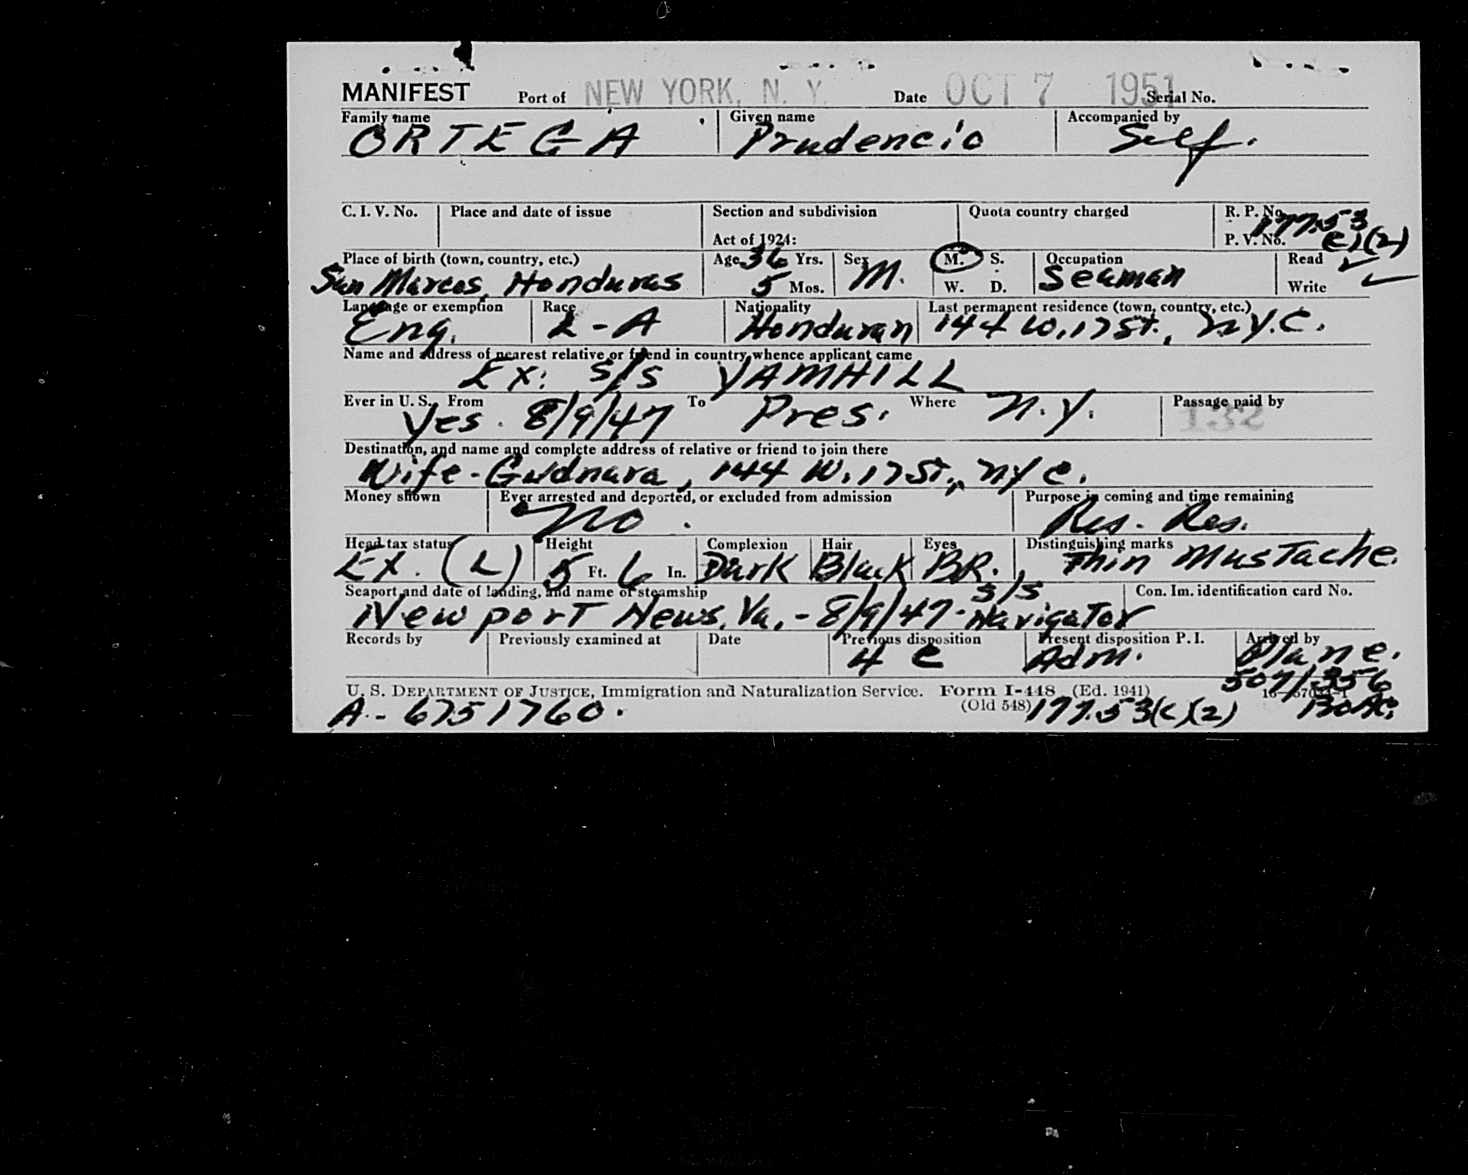 MANIFEST Port of NEW YORK, N. Y. Date OCT 7 1951 Serial No.
Family name Given name Accompanied by
ORTEGA Prudencio Self.
C. I. V. No. Place and date of issue Section and subdivision Quota country charged R. P. No.
177.53
Act of 1924: P. V. No. (c)(2)
Place of birth (town, country, etc.) Age 36 Yrs. Sex M. S. Occupation Read ✓
San Marcos, Honduras 5 Mos. M. W. D. Seaman Write ✓
Language or exemption Race Nationality Last permanent residence (town, country, etc.)
Eng. L-A Honduran 144 W. 17 St., N.Y.C.
Name and address of nearest relative or friend in country whence applicant came
Ex: S/S YAMHILL
Ever in U. S. From To Where Passage paid by
Yes. 8/9/47 Pres. N.Y. 132
Destination, and name and complete address of relative or friend to join there
Wife - Gudnara, 144 W. 17 St., NYC.
Money shown Ever arrested and deported, or excluded from admission Purpose in coming and time remaining
No. Res. Res.
Head tax status Height Complexion Hair Eyes Distinguishing marks
Ex. (L) 5 Ft. 6 In. Dark Black BR. Thin Mustache.
Seaport and date of landing, and name of steamship Con. Im. identification card No.
Newport News, Va. - 8/9/47 - S/S Navigator
Records by Previously examined at Date Previous disposition Present disposition P. I. Arrived by
4 C Adm. Plane.
507/356
U. S. DEPARTMENT OF JUSTICE, Immigration and Naturalization Service. Form I-448 (Ed. 1941)
(Old 548)
A - 6751760. 177.53(c)(2) BOAC